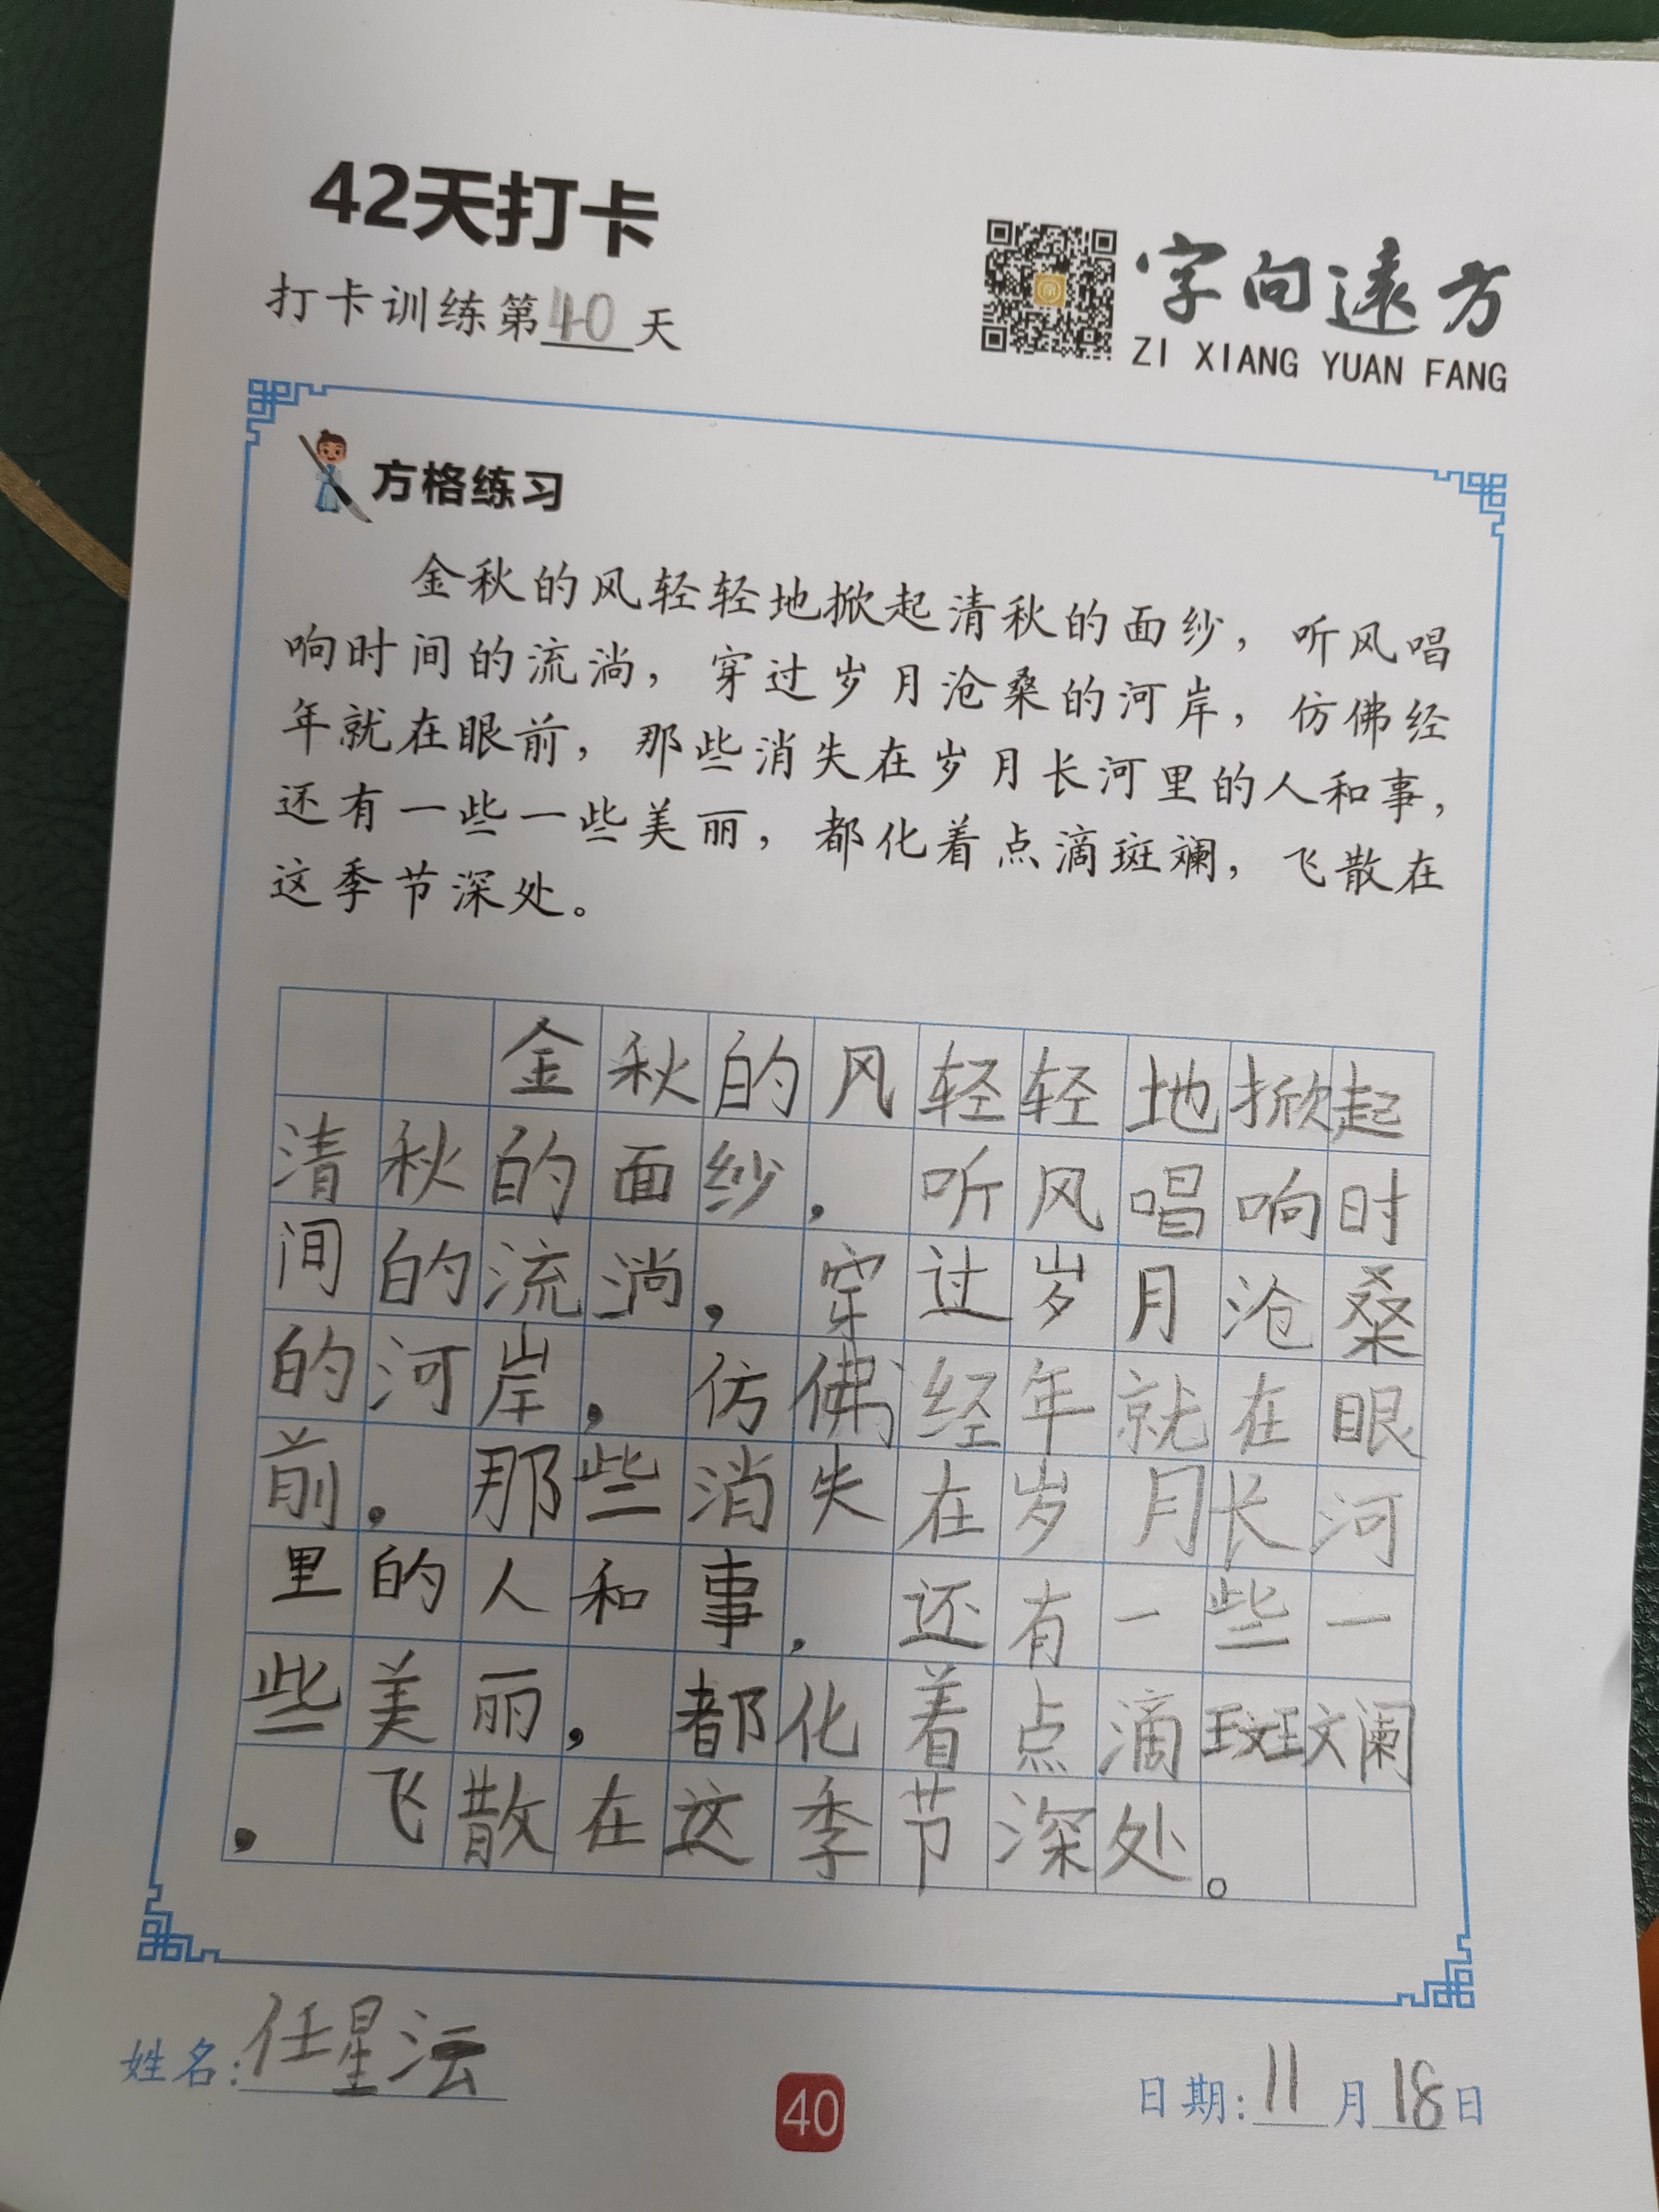 42天打卡
打卡训练第40天
字向远方
ZI XIANG YUAN FANG
方格练习
金秋的风轻轻地掀起清秋的面纱，听风唱
响时间的流淌，穿过岁月沧桑的河岸，仿佛经
年就在眼前，那些消失在岁月长河里的人和事，
还有一些一些美丽，都化着点滴斑斓，飞散在
这季节深处。
金秋的风轻轻地掀起
清秋的面纱，听风唱响时
间的流淌，穿过岁月沧桑
的河岸，仿佛经年就在眼
前，那些消失在岁月长河
里的人和事，还有一些一
些美丽，都化着点滴斑斓
，飞散在这季节深处。
姓名:任星沄
40
日期:11月18日